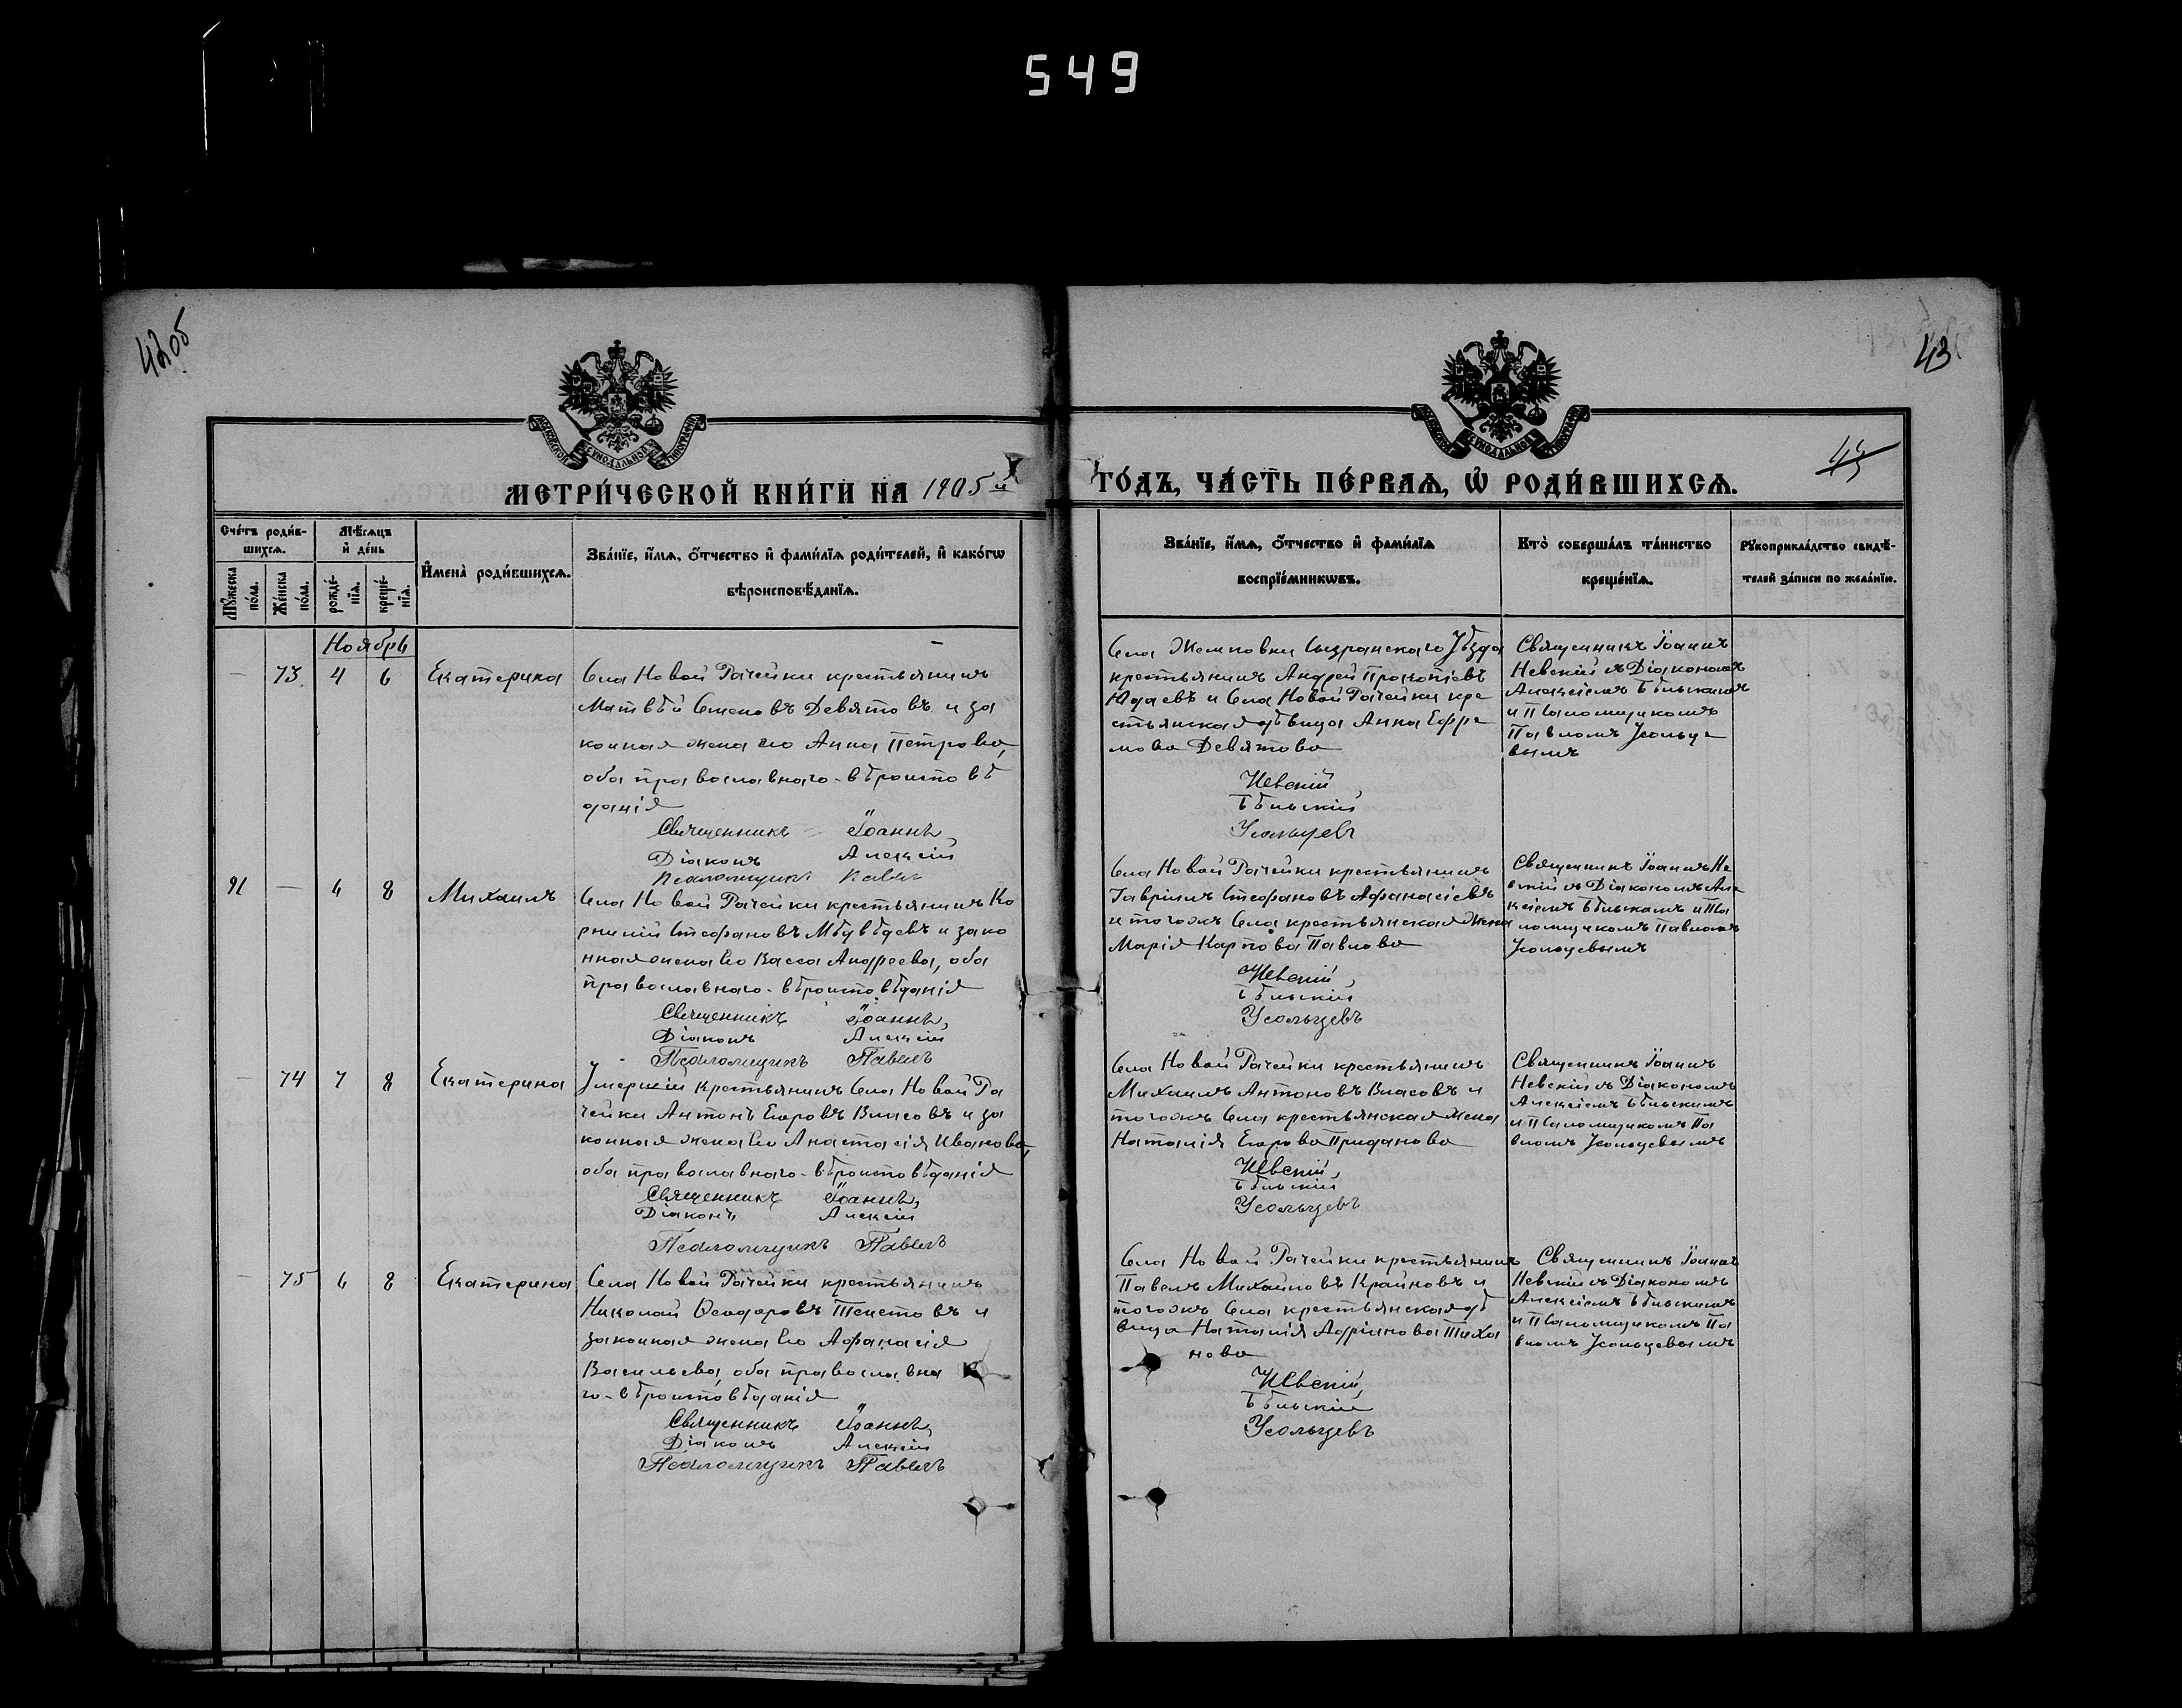 549
42 об
43
45
МОСКОВСКОЙ СѴНОДАЛЬНОЙ ТИПОГРАФІИ
МОСКОВСКОЙ СѴНОДАЛЬНОЙ ТИПОГРАФІИ
МЕТРИ́ЧЕСКОЙ КНИ́ГИ НА 1905й
ГО́ДЪ, ЧА́СТЬ ПЕ́РВАѦ, Ѡ҆ РОДИ́ВШИХСѦ.
Сче́тъ роди́в-
шихсѧ.
Мѣ́сѧцъ
и҆ де́нь
Мꙋ́жеска
по́ла.
Же́нска
по́ла.
рожде́-
нїѧ.
креще́-
нїѧ.
И҆мена̀ роди́вшихсѧ.
Зва́нїе, и҆́мѧ, о҆́тчество и҆ фами́лїѧ роди́телей, и҆ како́гѡ
вѣроисповѣ́данїѧ.
Зва́нїе, и҆́мѧ, о҆́тчество и҆ фами́лїѧ
воспрїе́мникѡвъ.
Кто̀ соверша́лъ та́инство
креще́нїѧ.
Рꙋкоприкла́дство свидѣ́-
телей за́писи по жела́нїю.
Ноябрь
— 73 4 6 Екатерина
Села Новой Рачейки крестьянинъ
Матвѣй Семеновъ Девятовъ и за
конная жена его Анна Петрова,
оба православнаго-вѣроисповѣ
данія
Священникъ Іоаннъ,
Діаконъ Алексій
Псаломщикъ Павелъ
Села Жемковки Сызранскаго Уѣзда
крестьянинъ Андрей Прокопіевъ
Юдаевъ и Села Новой Рачейки кре
стьянская дѣвица Анна Ефре
мова Девятова
Невскій,
Бѣльскій
Усольцевъ
Священникъ Іоаннъ
Невскій съ Діакономъ
Алексіемъ Бѣльскимъ
и Псаломщикомъ
Павломъ Усольце
вымъ
91 — 4 8 Михаилъ
Села Новой Рачейки крестьянинъ Ко
рнилій Стефановъ Мѣдвѣдевъ и зако
нная жена Его Васса Андреева, оба
православнаго-вѣроисповѣданія
Священникъ Іоаннъ,
Діаконъ Алексій
Псаломщикъ Павелъ
Села Новой Рачейки крестьянинъ
Гавріилъ Стефановъ Афанасіевъ
и тогожъ Села крестьянская жена
Марія Карпова Павлова
Невскій,
Бѣльскій
Усольцевъ
Священникъ Іоаннъ Не
вскій съ Діакономъ Але
ксіемъ Бѣльскимъ и Пса
ломщикомъ Павломъ
Усольцевымъ
— 74 7 8 Екатерина
Умершій крестьянинъ Села Новой Ра
чейки Антонъ Егоровъ Власовъ и за
конная жена Его Анастасія Иванова,
оба православнаго-вѣроисповѣданія
Священникъ Іоаннъ,
Діаконъ Алексій
Псаломщикъ Павелъ
Села Новой Рачейки крестьянинъ
Михаилъ Антоновъ Власовъ и
тогожъ Села крестьянская жена
Наталія Егорова Приданова
Невскій,
Бѣльскій
Усольцевъ
Священникъ Іоаннъ
Невскій съ Діакономъ
Алексіемъ Бѣльскимъ
и Псаломщикомъ Па
вломъ Усольцевымъ
— 75 6 8 Екатерина
Села Новой Рачейки крестьянинъ
Николай Ѳеодоровъ Теистовъ и
законная жена Его Афанасія
Васильева, оба православна
го-вѣроисповѣданія
Священникъ Іоаннъ,
Діаконъ Алексій
Псаломщикъ Павелъ
Села Новой Рачейки крестьянинъ
Павелъ Михайловъ Крайновъ и
тогожъ Села крестьянская дѣ
вица Наталія Адріанова Тиха
нова
Невскій,
Бѣльскій
Усольцевъ
Священникъ Іоаннъ
Невскій съ Діакономъ
Алексіемъ Бѣльскимъ
и Псаломщикомъ Па
вломъ Усольцевымъ